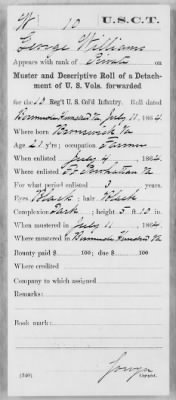 W 10 U.S.C.T.
George Williams
Appears with rank of Private on
Muster and Descriptive Roll of a Detach-
ment of U. S. Vols. forwarded
for the 10 Reg't U.S. Col'd Infantry. Roll dated
Bermuda Hundred Va July 11, 1864.
Where born Brunswick Va
Age 21 y'rs; occupation Farmer
When enlisted July 4, 1864.
Where enlisted Ft Powhatan Va
For what period enlisted 3 years.
Eyes Black; hair Black
Complexion Dark; height 5 ft. 10 in.
When mustered in July 11, 1864.
Where mustered in Bermuda Hundred Va
Bounty paid $ 100; due $ 100
Where credited
Company to which assigned
Remarks:
Book mark:
(340) Copyist.